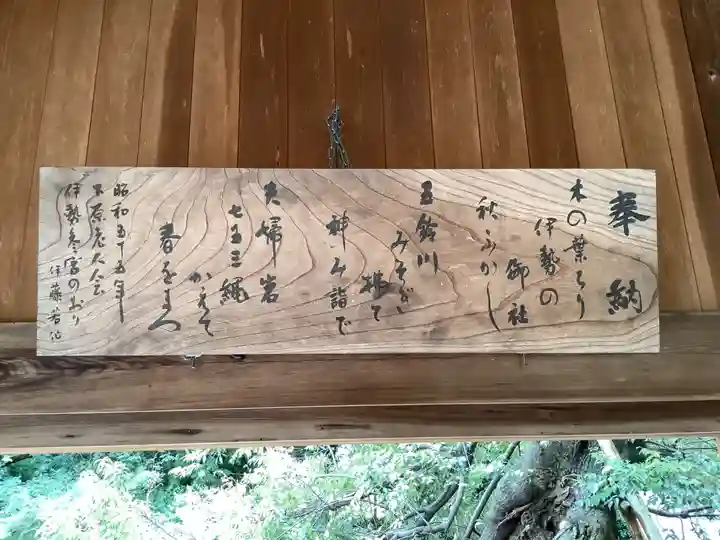 奉納
木の葉ちり
伊勢の
御社
秋ふかし
五鈴川
みそぎ
推て
神み詣で
夫婦岩
七五三縄
かえて
春をまつ
昭和五十五年
老人会
伊勢参宮のおり
伊藤